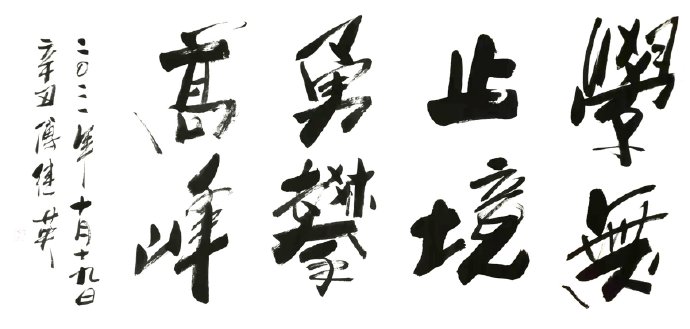 學無
止境
勇攀
高峰
二〇二一年十月十九日
辛丑 傅建英